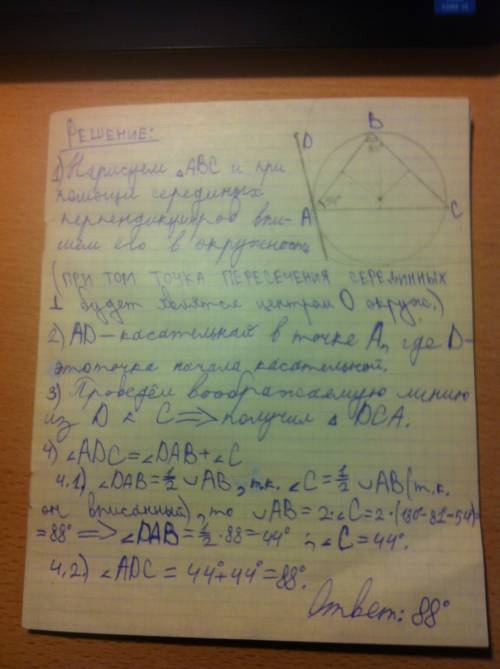 РЕШЕНИЕ:
1) Нарисуем △ABC и при
помощи серединных
перпендикуляров впи-
шем его в окружность
(ПРИ ТОМ ТОЧКА ПЕРЕСЕЧЕНИЯ СЕРЕДИННЫХ
⊥ будет являтся центром O окруж.)
2) AD – касательная в точке A, где D –
это точка начала касательной.
3) Проведём воображаемую линию
из D к C ⟹ получил △ DCA.
4) ∠ADC = ∠DAB + ∠C
4.1) ∠DAB = 1/2 ∪AB, т.к. ∠C = 1/2 ∪AB (т.к.
он вписанный), то ∪AB = 2·∠C = 2·(180-82-54)=
= 88° ⟹ ∠DAB = 1/2 · 88 = 44° ; ∠C = 44°.
4.2) ∠ADC = 44° + 44° = 88°.
Ответ: 88°
D
B
A
C